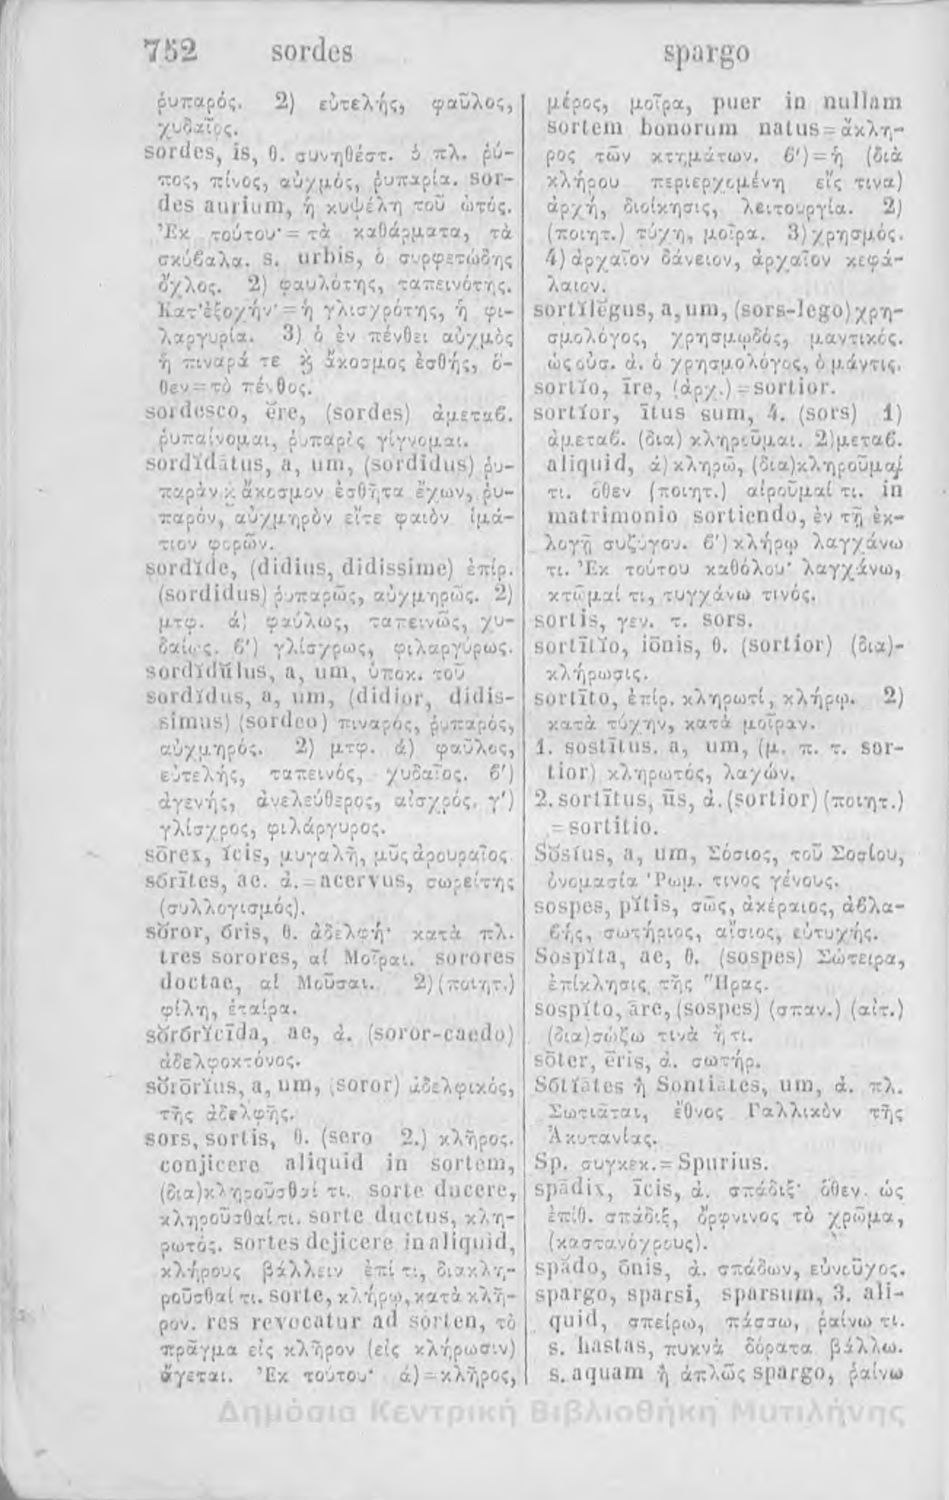 752 sordes spargo
ῥυπαρός. 2) εὐτελής, φαῦλος,
χυδαῖος.
sordes, is, θ. συνηθέστ. ὁ πλ. ῥύ-
πος, πίνος, αὐχμός, ῥυπαρία. sor-
des aurium, ἡ κυψέλη τοῦ ὠτός.
Ἐκ τούτου· = τὰ καθάρματα, τὰ
σκύβαλα. s. urbis, ὁ συρφετώδης
ὄχλος. 2) φαυλότης, ταπεινότης.
Κατ' ἐξοχήν· = ἡ γλισχρότης, ἡ φι-
λαργυρία. 3) ὁ ἐν πένθει αὐχμὸς
ἡ πιναρά τε ϗ ἄκοσμος ἐσθής, ὅ-
θεν = τὸ πένθος.
sordesco, ĕre, (sordes) ἀμεταβ.
ῥυπαίνομαι, ῥυπαρὸς γίγνομαι.
sordĭdātus, a, um, (sordidus) ῥυ-
παρὰν ϗ ἄκοσμον ἐσθῆτα ἔχων, ῥυ-
παρόν, αὐχμηρὸν εἴτε φαιὸν ἱμά-
τιον φορῶν.
sordĭde, (didius, didissime) ἐπίρ.
(sordidus) ῥυπαρῶς, αὐχμηρῶς. 2)
μτφ. ά) φαύλως, ταπεινῶς, χυ-
δαίως. β') γλίσχρως, φιλαργύρως.
sordĭdŭlus, a, um, ὑποκ. τοῦ
sordĭdus, a, um, (didior, didis-
simus) (sordeo) πιναρός, ῥυπαρός,
αὐχμηρός. 2) μτφ. ά) φαῦλος,
εὐτελής, ταπεινός, χυδαῖος. β')
ἀγενής, ἀνελεύθερος, αἰσχρός. γ')
γλίσχρος, φιλάργυρος.
sōrex, ĭcis, μυγαλῆ, μῦς ἀρουραῖος.
sōrītes, ae. ά. = acervus, σωρείτης
(συλλογισμός).
sŏror, ōris, θ. ἀδελφή· κατὰ πλ.
tres sorores, αἱ Μοῖραι. sorores
doctae, αἱ Μοῦσαι. 2) (ποιητ.)
φίλη, ἑταίρα.
sŏrōrĭcīda, ae, ά. (soror-caedo)
ἀδελφοκτόνος.
sŏrōrĭus, a, um, (soror) ἀδελφικός,
τῆς ἀδελφῆς.
sors, sortis, θ. (sero 2.) κλῆρος.
conjicere aliquid in sortem,
(δια)κληροῦσθαί τι. sorte ducere,
κληροῦσθαί τι. sorte ductus, κλη-
ρωτός. sortes dejicere in aliquid,
κλήρους βάλλειν ἐπί τι, διακλη-
ροῦσθαί τι. sorte, κλήρῳ, κατὰ κλῆ-
ρον. res revocatur ad sorten, τὸ
πρᾶγμα εἰς κλῆρον (εἰς κλήρωσιν)
ἄγεται. Ἐκ τούτου· ά) = κλῆρος,
μέρος, μοῖρα, puer in nullam
sortem bonorum natus = ἄκλη-
ρος τῶν κτημάτων. β') = ἡ (διὰ
κλήρου περιερχομένη εἴς τινα)
ἀρχή, διοίκησις, λειτουργία. 2)
(ποιητ.) τύχη, μοῖρα. 3) χρησμός.
4) ἀρχαῖον δάνειον, ἀρχαῖον κεφά-
λαιον.
sortĭlĕgus, a, um, (sors-lego) χρη-
σμολόγος, χρησμῳδός, μαντικός.
ὡς οὐσ. ά. ὁ χρησμολόγος, ὁ μάντις.
sortĭo, īre, (ἀρχ.) = sortior.
sortĭor, ītus sum, 4. (sors) 1)
ἀμεταβ. (δια) κληροῦμαι. 2) μεταβ.
aliquid, ά) κληρῶ, (δια)κληροῦμαί
τι. ὅθεν (ποιητ.) αἱροῦμαί τι. in
matrimonio sortiendo, ἐν τῇ ἐκ-
λογῇ συζύγου. β') κλήρῳ λαγχάνω
τι. Ἐκ τούτου καθόλου· λαγχάνω,
κτῶμαί τι, τυγχάνω τινός.
sortis, γεν. τ. sors.
sortītĭo, iōnis, θ. (sortior) (δια)-
κλήρωσις.
sortīto, ἐπίρ. κληρωτί, κλήρῳ. 2)
κατὰ τύχην, κατὰ μοῖραν.
1. sostītus. a, um, (μ. π. τ. sor-
tior) κληρωτός, λαχών.
2. sortītus, ūs, ά. (sortior) (ποιητ.)
= sortitio.
Sōsĭus, a, um, Σόσιος, τοῦ Σοσίου,
ὀνομασία Ῥωμ. τινος γένους.
sospes, pĭtis, σῶς, ἀκέραιος, ἀβλα-
βής, σωτήριος, αἴσιος, εὐτυχής.
Sospĭta, ae, θ. (sospes) Σώτειρα,
ἐπίκλησις τῆς Ἥρας.
sospĭto, āre, (sospes) (σπαν.) (αἰτ.)
(δια)σώζω τινὰ ἤ τι.
sōter, ēris, ά. σωτήρ.
Sōtĭātes ἢ Sontiates, um, ά. πλ.
Σωτιᾶται, ἔθνος Γαλλικὸν τῆς
Ἀκυτανίας.
Sp. συγκεκ. = Spurius.
spādix, īcis, ά. σπάδιξ· ὅθεν ὡς
ἐπίθ. σπάδιξ, ὄρφνινος τὸ χρῶμα,
(καστανόχρους).
spădo, ōnis, ά. σπάδων, εὐνοῦχος.
spargo, sparsi, sparsum, 3. ali-
quid, σπείρω, πάσσω, ῥαίνω τι.
s. hastas, πυκνὰ δόρατα βάλλω.
s. aquam ἢ ἁπλῶς spargo, ῥαίνω
Δημόσια Κεντρική Βιβλιοθήκη Μυτιλήνης